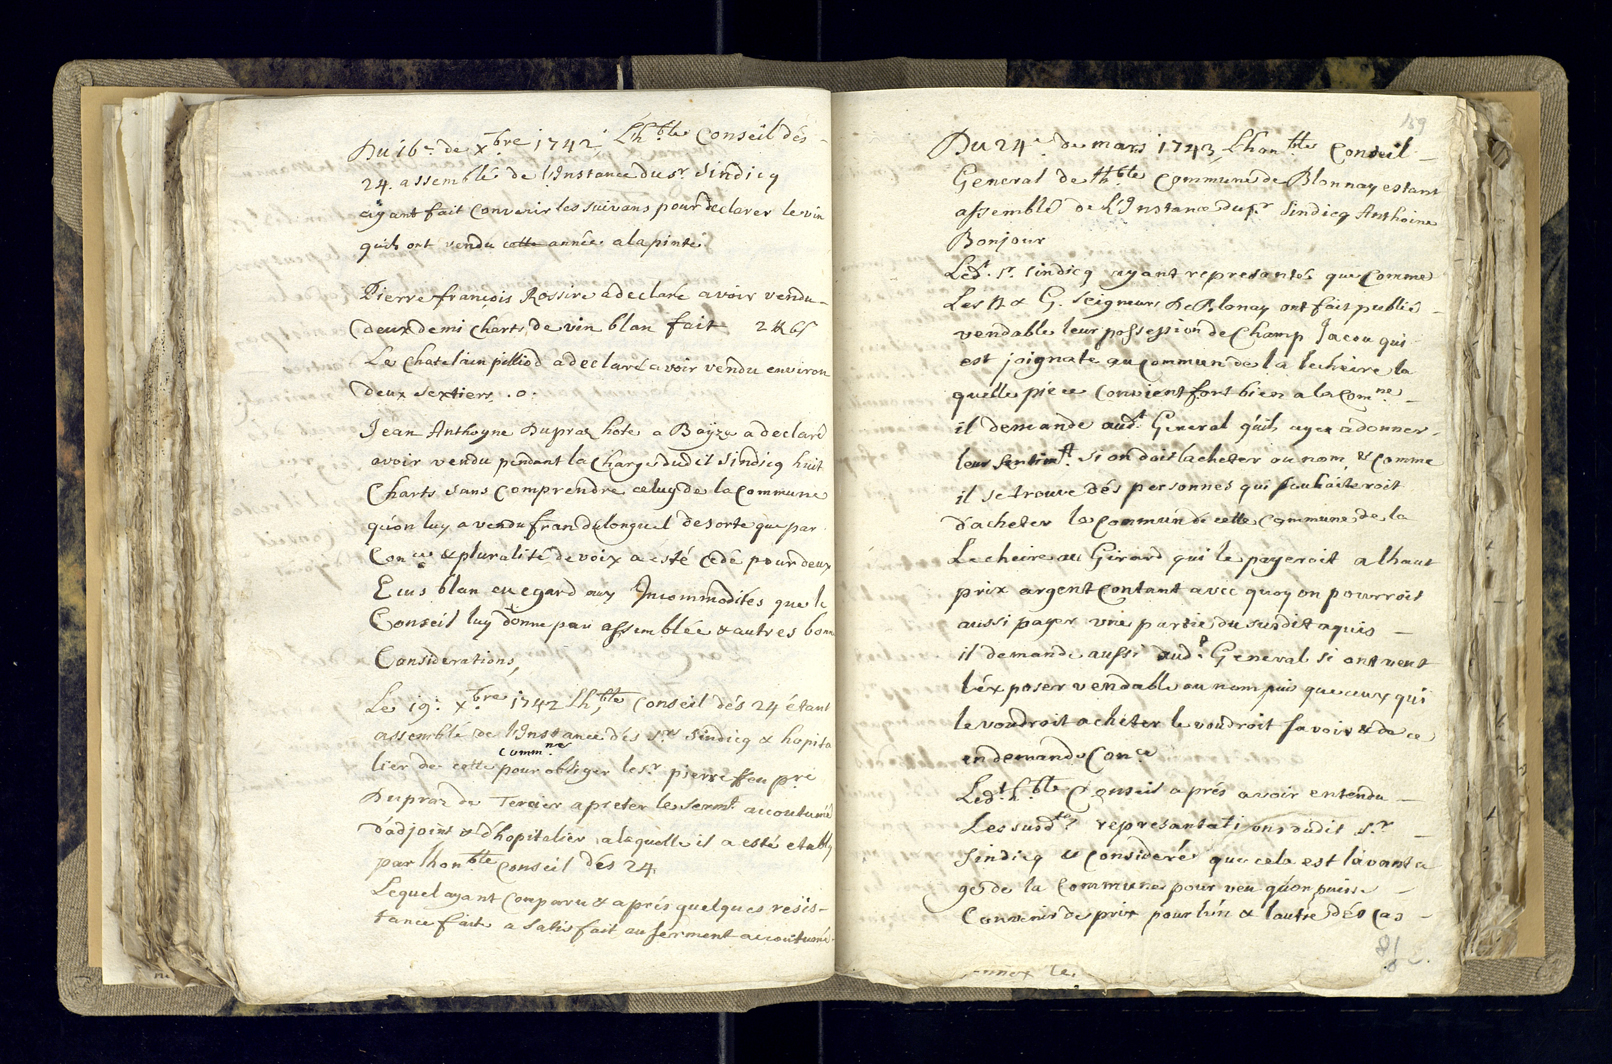 Du 16e. de xbre 1742, Lh.ble Conseil dés
24. assemblé de l'Instance du sr. Sindicq
aÿant fait Convenir les suivans pour declarer le vin
quils ont vendu cette année a la pinte
Pierre françois Rossire a declaré avoir vendu
deux demi Charts de vin blan fait 2
Le Chatelain pilliod a declaré avoir vendu environ
deux sextiers . 0 .
Jean Anthoyne Dupraz hote a Baÿze a declaré
avoir vendu pendant la Charge dudit Sindicq huit
Charts sans Comprendre celuy de la Commune
qu'on luy a vendu fran du longuel desorte que par
Con.ce & pluralité de voix a esté Cedé pour deux
Ecus blan eu egard aux Incommodités que le
Conseil luy donne par assemblée & autres bonne
Considerations,
Le 19e. x.bre 1742 Lh.ble Conseil dés 24 étant
assemblé de l'Instance dés s.rs Sindicq & hopita
comm.ne
lier de cette pour obliger le s.r pierre ffeu pre
Dupraz de Tercier a preter le serm.t accoutumé
d'adjoint & d'hopitalier, a laquelle il a esté etably
par lhon.ble Conseil dés 24,
Lequel ayant Comparu & aprés quelques resis-
tance faite a satisfait au serment accoutumé.
159
Du 24e. de mars 1743, Lhon.ble Conseil
General de Hble Commune de Blonnay estant
assemblé de l'Instance du sr. Sindicq Anthoine
Bonjour
Led.t sr. Sindicq ayant represanté que Comme
Les N & G. Seigneurs De Blonay ont fait publié
vendable leur possession de Champ Jacou qui
est joignate au Commun de la lecheire la
quelle piece Convient fort bien a la Com.ne
il demande aud.t General quils aye a donner
leur sentim.t si on doit lacheter ou nom, & Comme
il se trouve dés personnes qui souhaiteroit
d'acheter le Commun de cette Commune de la
Lecheire au Girard qui le payeroit a lhaut
prix argent Contant avec quoy on pourroit
aussi payer vne partie du susdit aquis
il demande aussi aud.t General si ont veut
léxposer vendable ou nom puis que ceux qui
le voudroit acheter le voudroit savoir & de ce
en demande Con.ce
Led.t h.ble Conseil aprés avoir entendu
Les susd.tes represantations dudit s.r
Sindicq & Consideré que cela est lavanta
ge de la Commune pour veu qu'on puisse
Convenir de prix pour l'un & lautre dés Cas